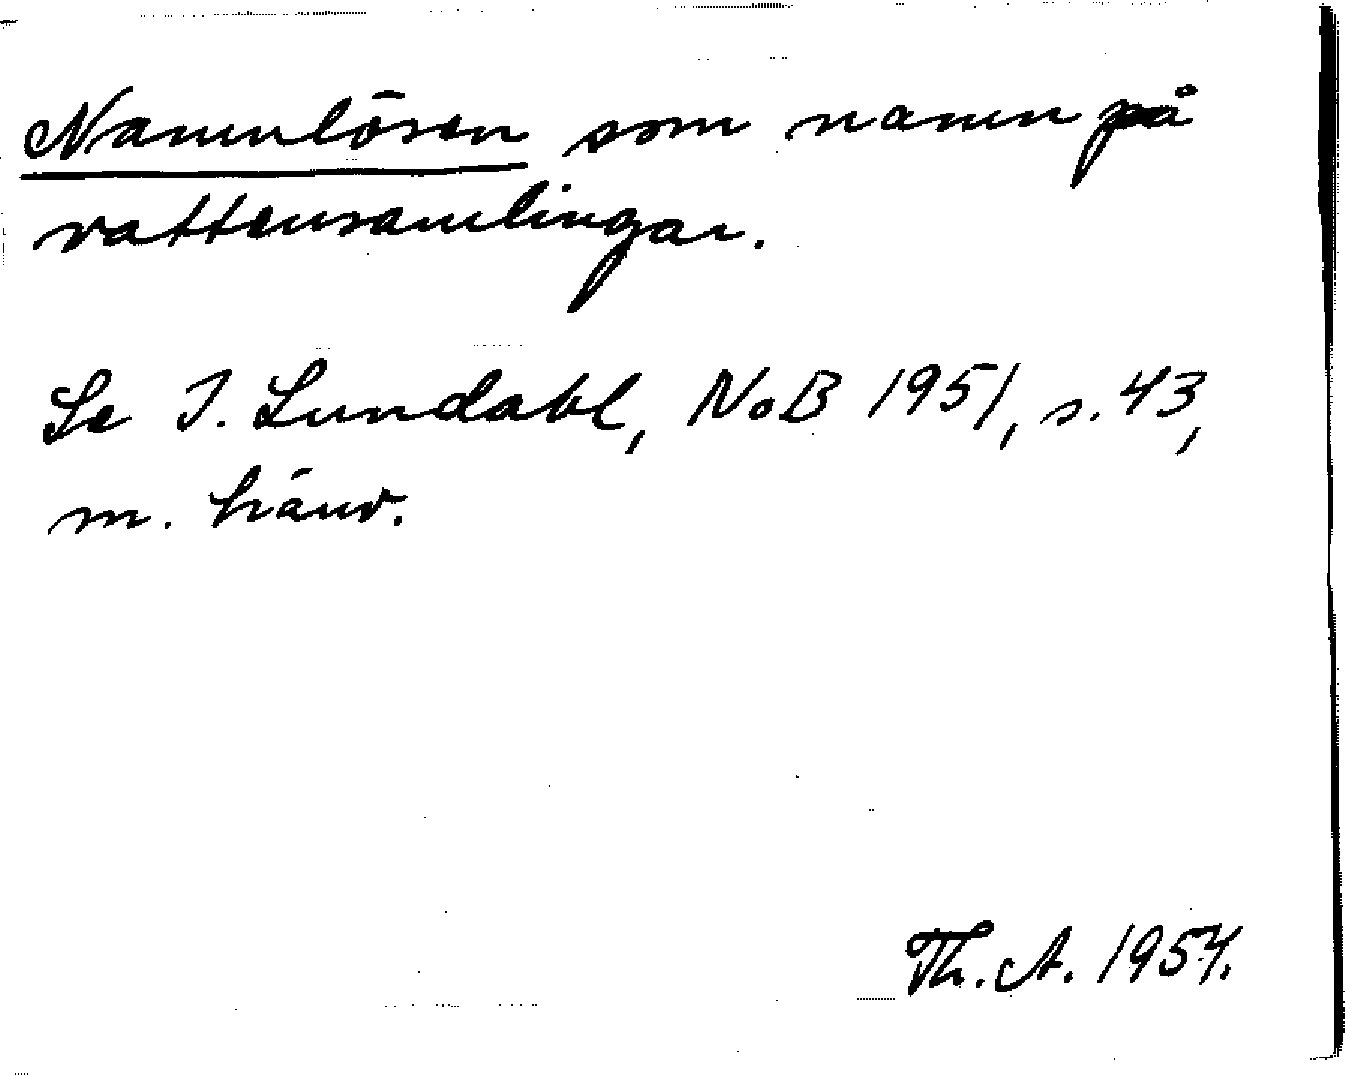 Namnlösen som namn på
vattensamlingar.
Se I. Lundahl, NoB 1951, s. 43,
m. hänv.
Th. A. 1954.